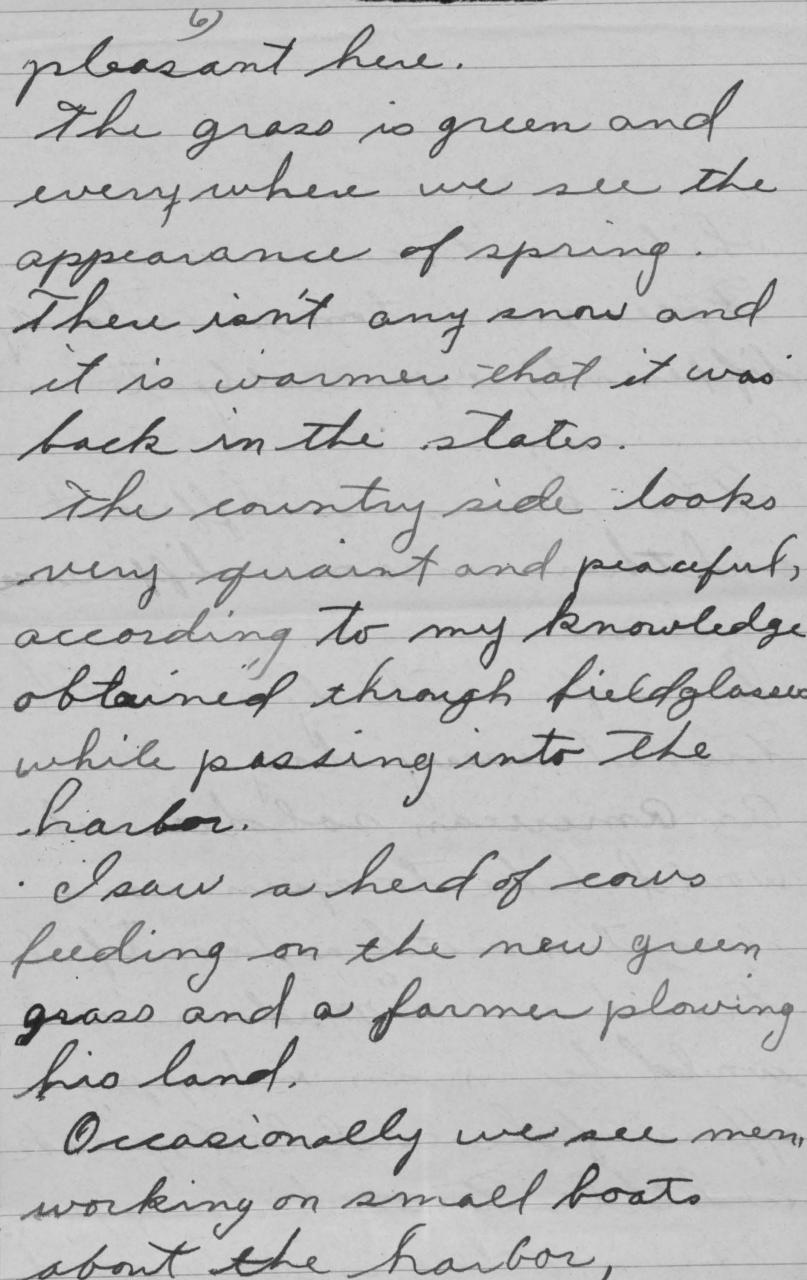 6)
pleasant here.
The grass is green and
everywhere we see the
appearance of spring.
There isn't any snow and
it is warmer that it was
back in the states.
The country side looks
very quaint and peaceful,
according to my knowledge
obtained through fieldglasses
while passing into the
harbor.
I saw a herd of cows
feeding on the new green
grass and a farmer plowing
his land.
Occasionally we see men,
working on small boats
about the harbor,